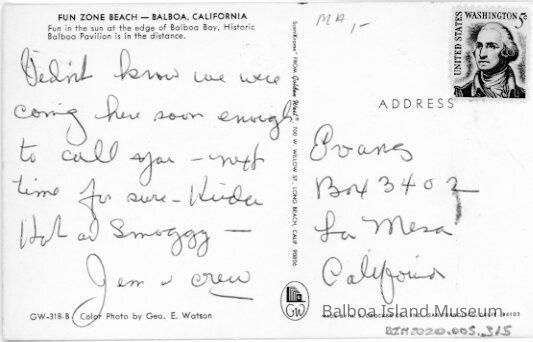 FUN ZONE BEACH — BALBOA, CALIFORNIA
Fun in the sun at the edge of Balboa Bay, Historic
Balboa Pavilion is in the distance.
Didn't know we were
coming here soon enough
to call you – next
time for sure – Kinda
Hot and Smoggy —
Jem & crew
GW-318-B Color Photo by Geo. E. Watson
FROM Golden West 700 W. WILLOW ST., LONG BEACH, CALIF. 90806
MA,-
UNITED STATES
WASHINGTON 5c
ADDRESS
Evans
Box 3402
La Mesa
California
GW
Balboa Island Museum
BIM2020.005.315